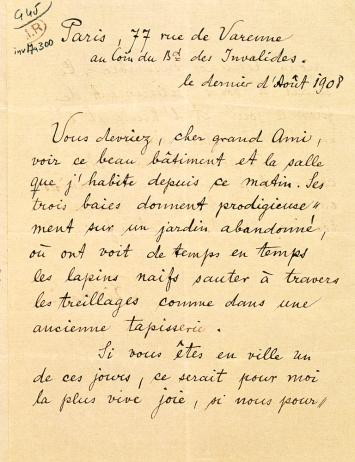 G45
I.R
inv 17.300
Paris, 77 rue de Varenne
au Coin du Bd des Invalides.
le dernier d'Août 1908
Vous devriez, cher grand Ami,
voir ce beau bâtiment et la salle
que j'habite depuis ce matin. Ses
trois baies donnent prodigieuse〃
ment sur un jardin abandonné,
où ont voit de temps en temps
les lapins naïfs sauter à travers
les treillages comme dans une
ancienne tapisserie.
Si vous êtes en ville un
de ces jours, ce serait pour moi
la plus vive joie, si nous pour〃